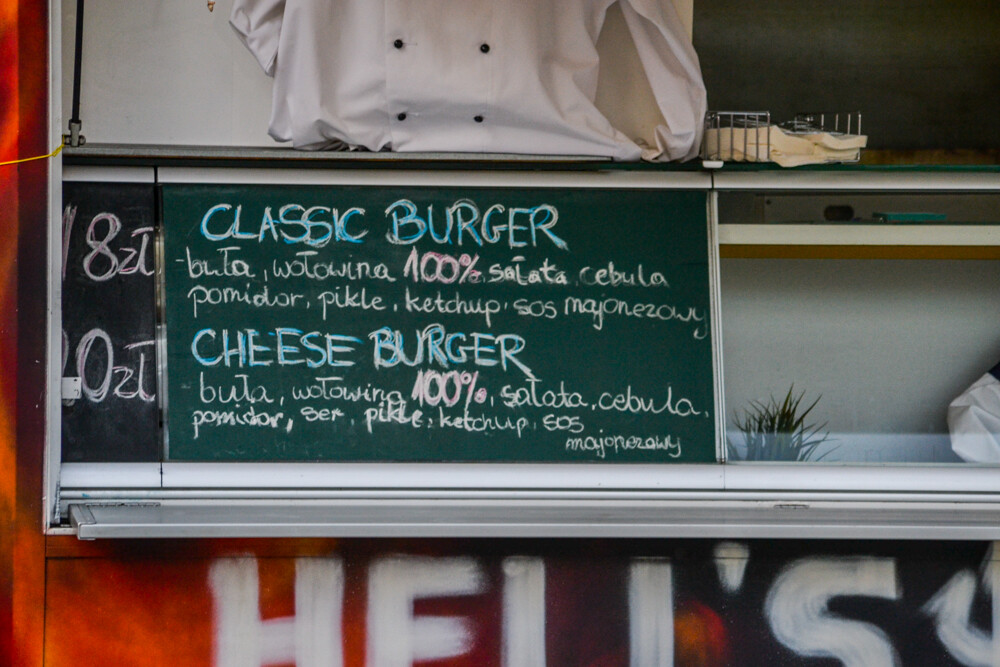 18zł
CLASSIC BURGER
-buła, wołowina 100%, sałata, cebula
pomidor, pikle, ketchup, sos majonezowy
0zł
CHEESE BURGER
buła, wołowina 100%, sałata, cebula,
pomidor, ser, pikle, ketchup, sos
majonezowy
HELL'S